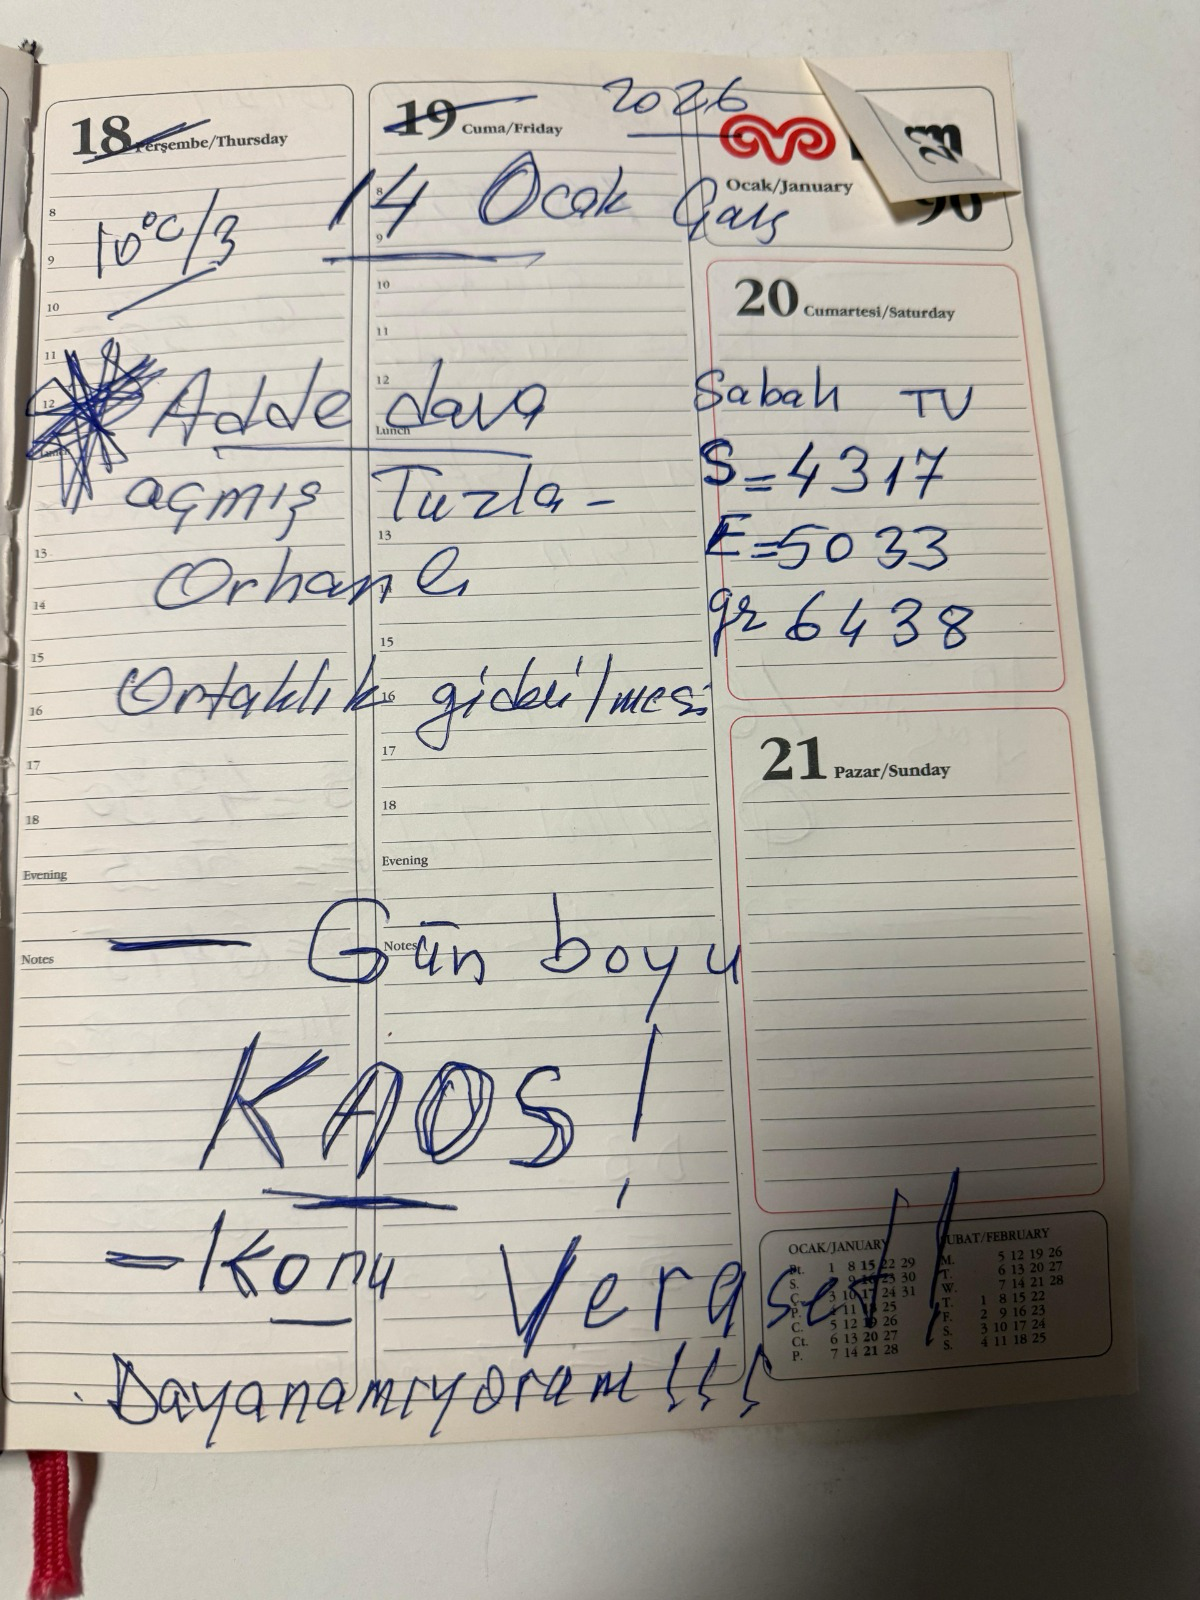 18 Perşembe/Thursday
19 Cuma/Friday
2026
Ocak/January
90
23
10°C/3
14 Ocak Çarş
8
9
10
11
12
Lunch
13
14
15
16
17
18
Evening
Notes
8
9
10
11
12
Lunch
13
14
15
16
17
18
Evening
Notes
Adde dava
açmış Tuzla -
Orhanlı
Ortaklık giderilmesi
— Gün boyu
KAOS!
— Konu Veraset!!
Dayanamıyoram!!!
20 Cumartesi/Saturday
Sabah TV
S = 4317
E = 5033
gr 6438
21 Pazar/Sunday
OCAK/JANUARY
Pt. 1 8 15 22 29
S. 9 16 23 30
Ç. 3 10 17 24 31
P. 4 11 18 25
C. 5 12 19 26
Ct. 6 13 20 27
P. 7 14 21 28
ŞUBAT/FEBRUARY
M. 5 12 19 26
T. 6 13 20 27
W. 7 14 21 28
T. 1 8 15 22
F. 2 9 16 23
S. 3 10 17 24
S. 4 11 18 25